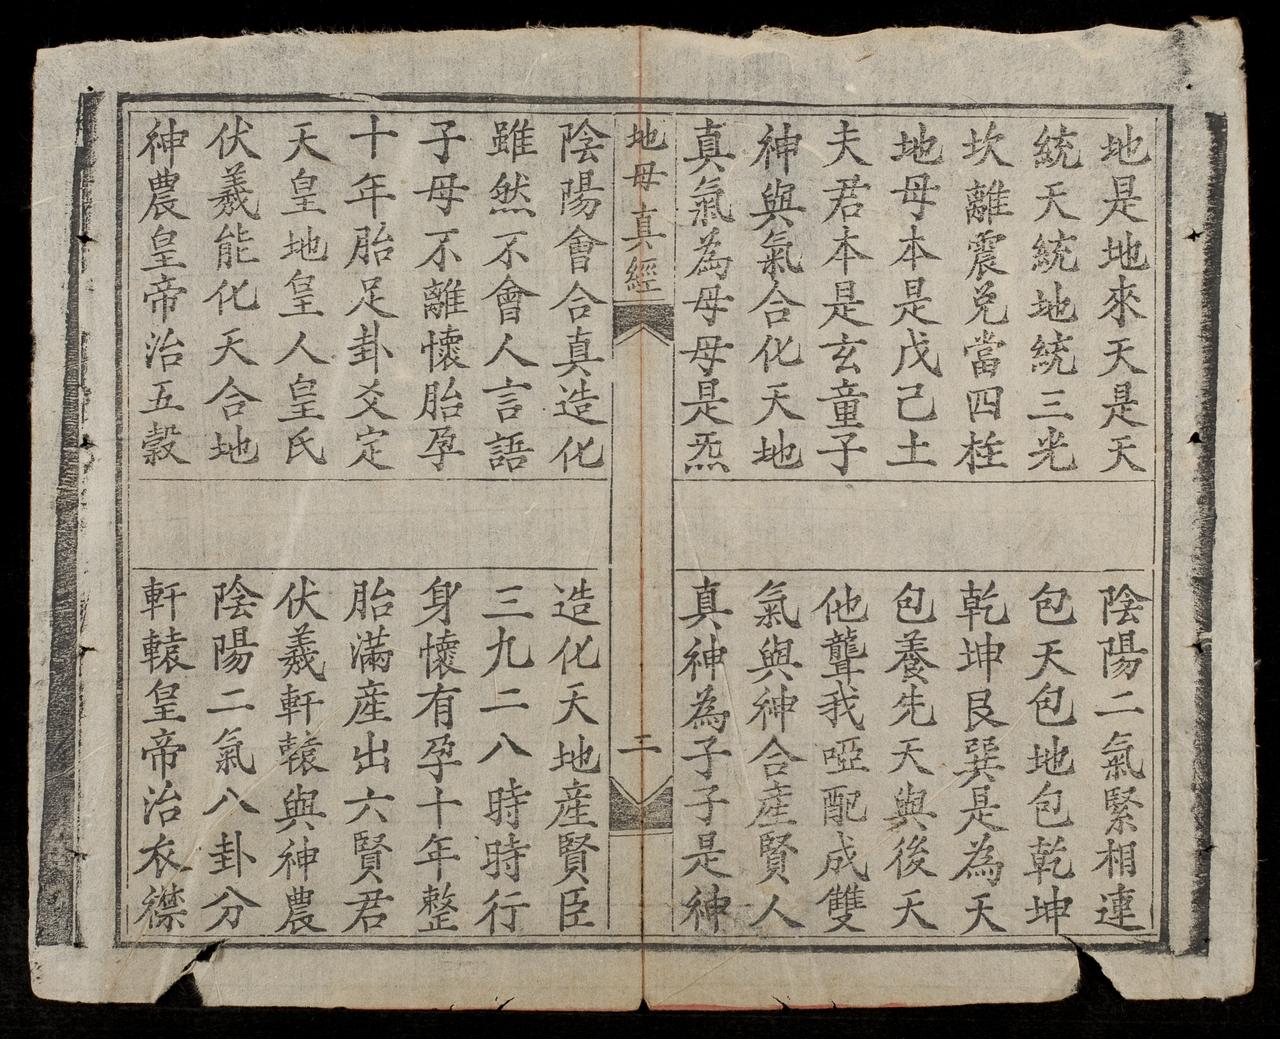 地是地來天是天
陰陽二氣緊相連
統天統地統三光
包天包地包乾坤
坎離震兌當四柱
乾坤艮巽是為天
地母本是戊己土
包養先天與後天
夫君本是玄童子
他聾我啞配成雙
神與氣合化天地
氣與神合產賢人
真氣為母母是炁
真神為子子是神
地母真經
二
陰陽會合真造化
造化天地產賢臣
雖然不會人言語
三九二八時時行
子母不離懷胎孕
身懷有孕十年整
十年胎足卦爻定
胎滿産出六賢君
天皇地皇人皇氏
伏羲軒轅與神農
伏羲能化天合地
陰陽二氣八卦分
神農皇帝治五穀
軒轅皇帝治衣襟